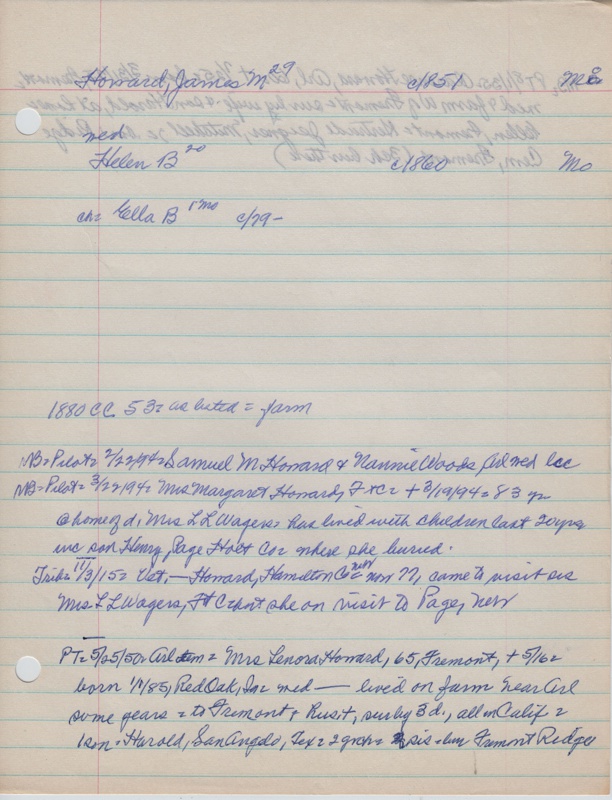 Howard, James M 29 c/1851 Mo
med
Helen B 20 c/1860 Mo
ch= Ella B 1mo c/79-
1880 CC 53= as listed = farm
NB=Pilot= 2/22/94= Samuel M Howard & Nannie Woods Arl med lcc
NB=Pilot= 3/22/94= Mrs Margaret Howard, FtC= + 3/19/94= 83 yr
@home of d, Mrs L L Wagers= has lived with children last 20 yrs
inc son Henry, Page Holt Co= where she buried.
Trib= 11/3/15= Vet, — Howard, Hamilton Co Neb now 77, came to visit sis
Mrs L L Wagers, Ft C but she on visit to Page, Neb
PT= 5/25/50= Arl item= Mrs Lenora Howard, 65, Fremont, + 5/16=
born 1/1/85, Red Oak, Ia= med — lived on farm near Arl
some years = to Fremont, sur by 3 d., all in Calif =
1 son= Harold, San Angelo, Tex= 2 grch= sis= bur Fremont Ridge